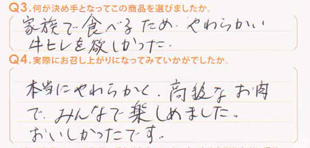 Q3.何が決め手となってこの商品を選びましたか。
家族で食べるため、やわらかい
牛ヒレを欲しかった。
Q4.実際にお召し上がりになってみていかがでしたか。
本当にやわらかく、高級なお肉
で、みんなで楽しめました。
おいしかったです。